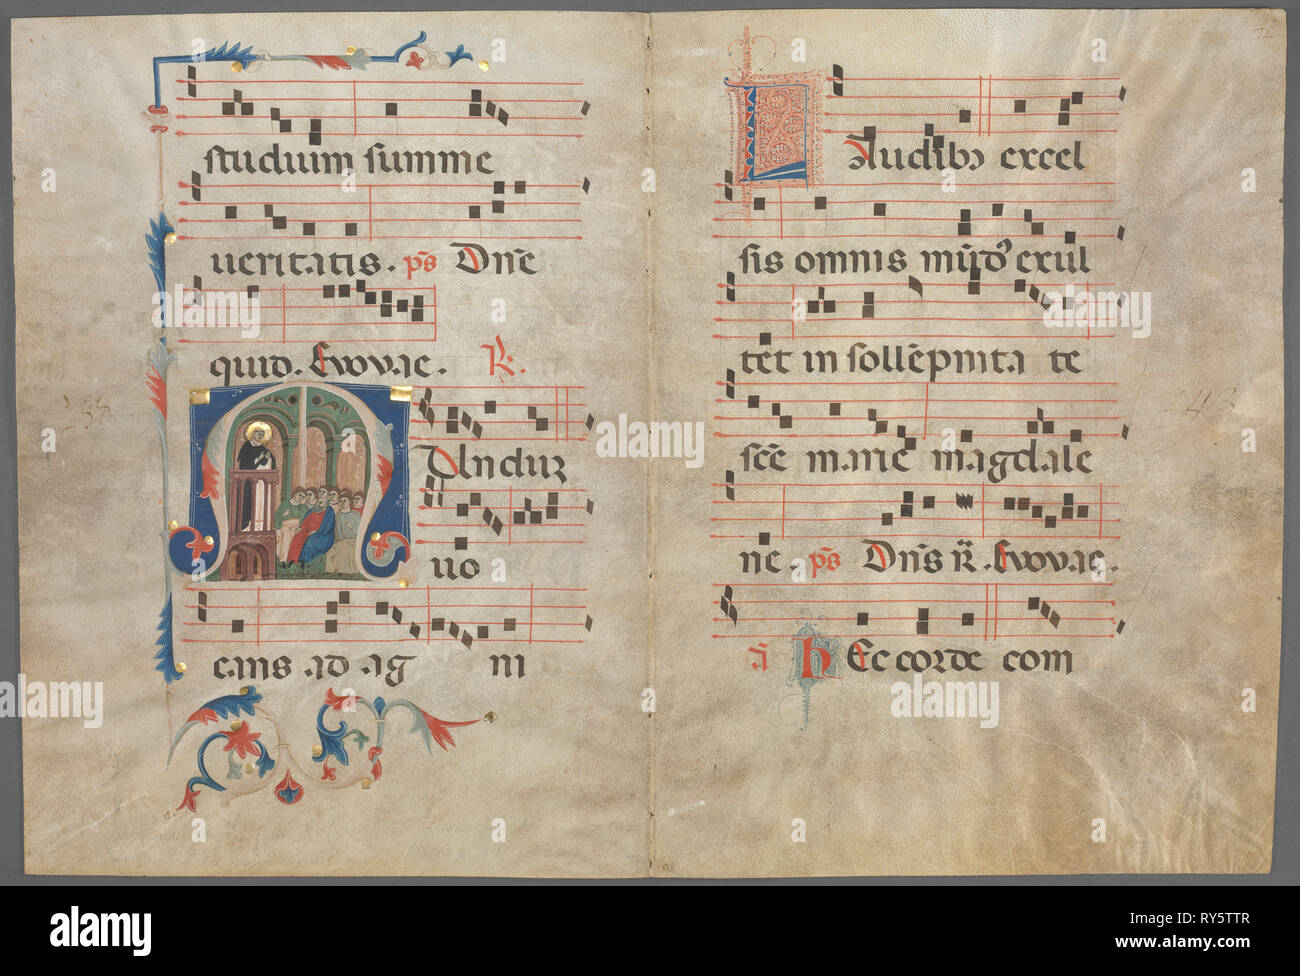 studium summe
ueritatis . ps Dñe
quid . Evovae . R.
Mundum
uo
cans ad ag ni
12
Laudibus excel
sis omnis mūdꝰ exul
tet in sollēpnita te
scē marie magdale
ne . ps Dñs r̄ . Evovae .
ā Hec corde com
alamy
Image ID: RY5TTR
www.alamy.com